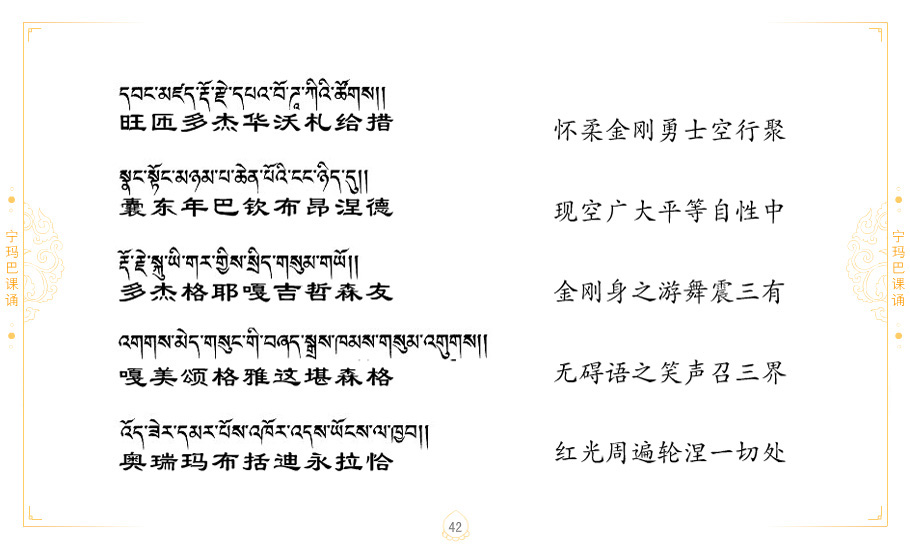 དབང་མཛད་རྡོ་རྗེ་དཔའ་བོ་ཌཱ་ཀིའི་ཚོགས།།
旺匝多杰华沃札给措
怀柔金刚勇士空行聚
སྣང་སྟོང་མཉམ་པ་ཆེན་པོའི་ངང་ཉིད་དུ།།
囊东年巴钦布昂涅德
现空广大平等自性中
རྡོ་རྗེ་སྐུ་ཡི་གར་གྱིས་སྲིད་གསུམ་གཡོ།།
多杰格耶嘎吉哲森友
金刚身之游舞震三有
འགགས་མེད་གསུང་གི་བཞད་སྒྲས་ཁམས་གསུམ་འགུགས།།
嘎美颂格雅这堪森格
无碍语之笑声召三界
འོད་ཟེར་དམར་པོས་འཁོར་འདས་ཡོངས་ལ་ཁྱབ།།
奥瑞玛布括迪永拉恰
红光周遍轮涅一切处
宁玛巴课诵
宁玛巴课诵
42